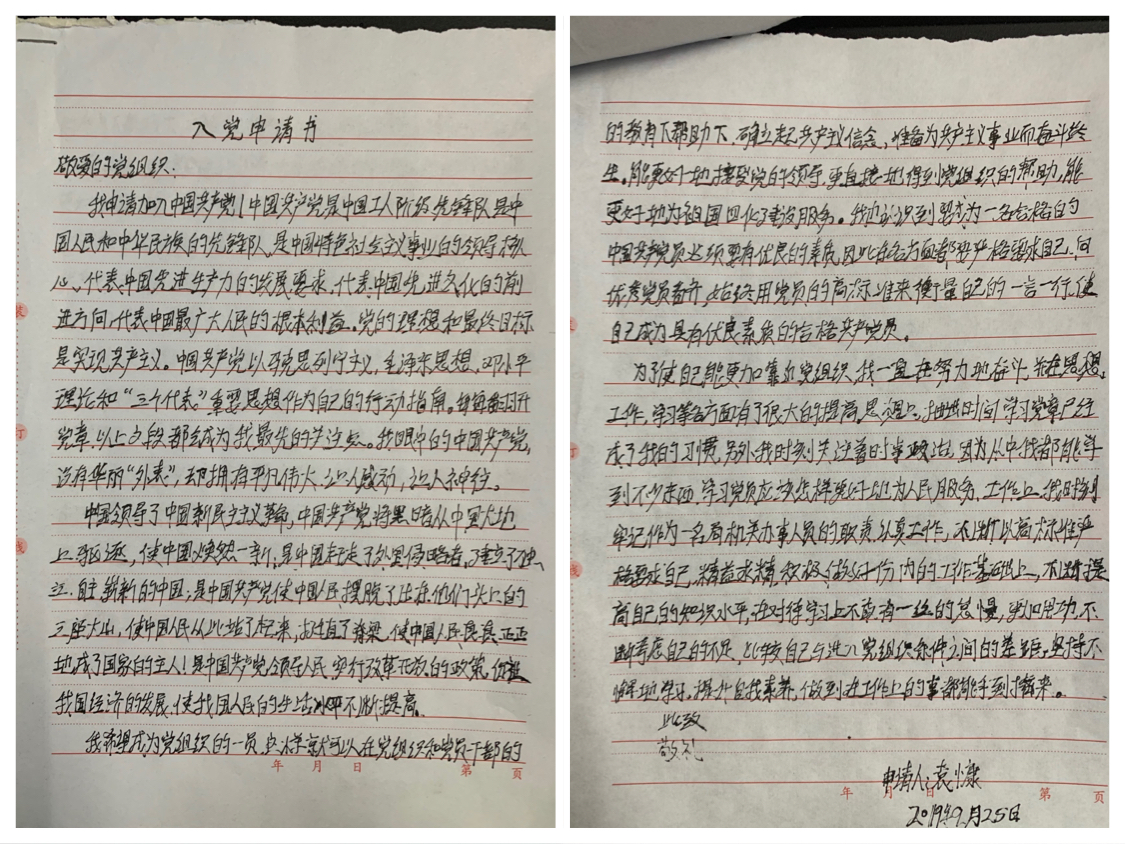 入党申请书
敬爱的党组织:
我申请加入中国共产党!中国共产党是中国工人阶级先锋队是中
国人民和中华民族的先锋队、是中国特色社会主义事业的领导核
心、代表中国先进生产力的发展要求、代表中国先进文化的前
进方向、代表中国最广大人民的根本利益。党的理想和最终目标
是实现共产主义。中国共产党以马克思列宁主义、毛泽东思想、邓小平
理论和“三个代表”重要思想作为自己的行动指南。每每翻开
党章、以上文段都会成为我最先的关注点。我眼中的中国共产党,
没有华丽“外表”,却拥有平凡伟大、让人感动,让人神往。
中国领导了中国新民主义革命,中国共产党将黑暗从中国大地
上驱逐,使中国焕然一新,是中国赶走了外里侵略者,建立了独
立、自主、崭新的中国;是中国共产党使中国民摆脱了压在他们头上的
三座大山,使中国人民从此站了起来,挺直了脊梁、使中国人民真真正正
地成了国家的主人!是中国共产党领导人民实行改革开放的政策,促进
我国经济的发展、使我国人民的生活水平不断提高。
我希望成为党组织的一员,这样就可以在党组织和党员干部的
年 月 日 第 页
的教育下帮助下、确立起共产主义信念,准备为共产主义事业而奋斗终
生。能更好地接受党的领导,更直接地得到党组织的帮助,能
更好地为祖国四化建设服务。我也意识到要成为一名合格的
中国共产党员必须要有优良的素质,因此在各方面都要严格要求自己,向
优秀党员看齐,始终用党员的高标准来衡量自己的一言一行,使
自己成为具有优良素质的合格共产党员。
为了使自己能更加靠近党组织、我一直在努力地奋斗,并在思想、
工作、学习等各方面有了很大的提高。思想上、抽出时间学习党章已经
成了我的习惯,另外我时刻关注着时事政治,因为从中我都能学
到不少东西、学习党员应该怎样更好地为人民服务。工作上、我时刻
牢记作为一名局机关办事人员的职责认真工作,不断以高标准严
格要求自己,精益求精,积极做好份内的工作基础上,不断提
高自己的知识水平,在对待学习上不敢有一丝的怠慢,刻用功,不
断考虑自己的不足,比较自己与进入党组织条件之间的差距,坚持不
懈地学习。提升自我素养、做到进工作上的事都能手到擒来。
此致
敬礼
申请人:袁慷
年 月 日 第 页
2019年9月25日